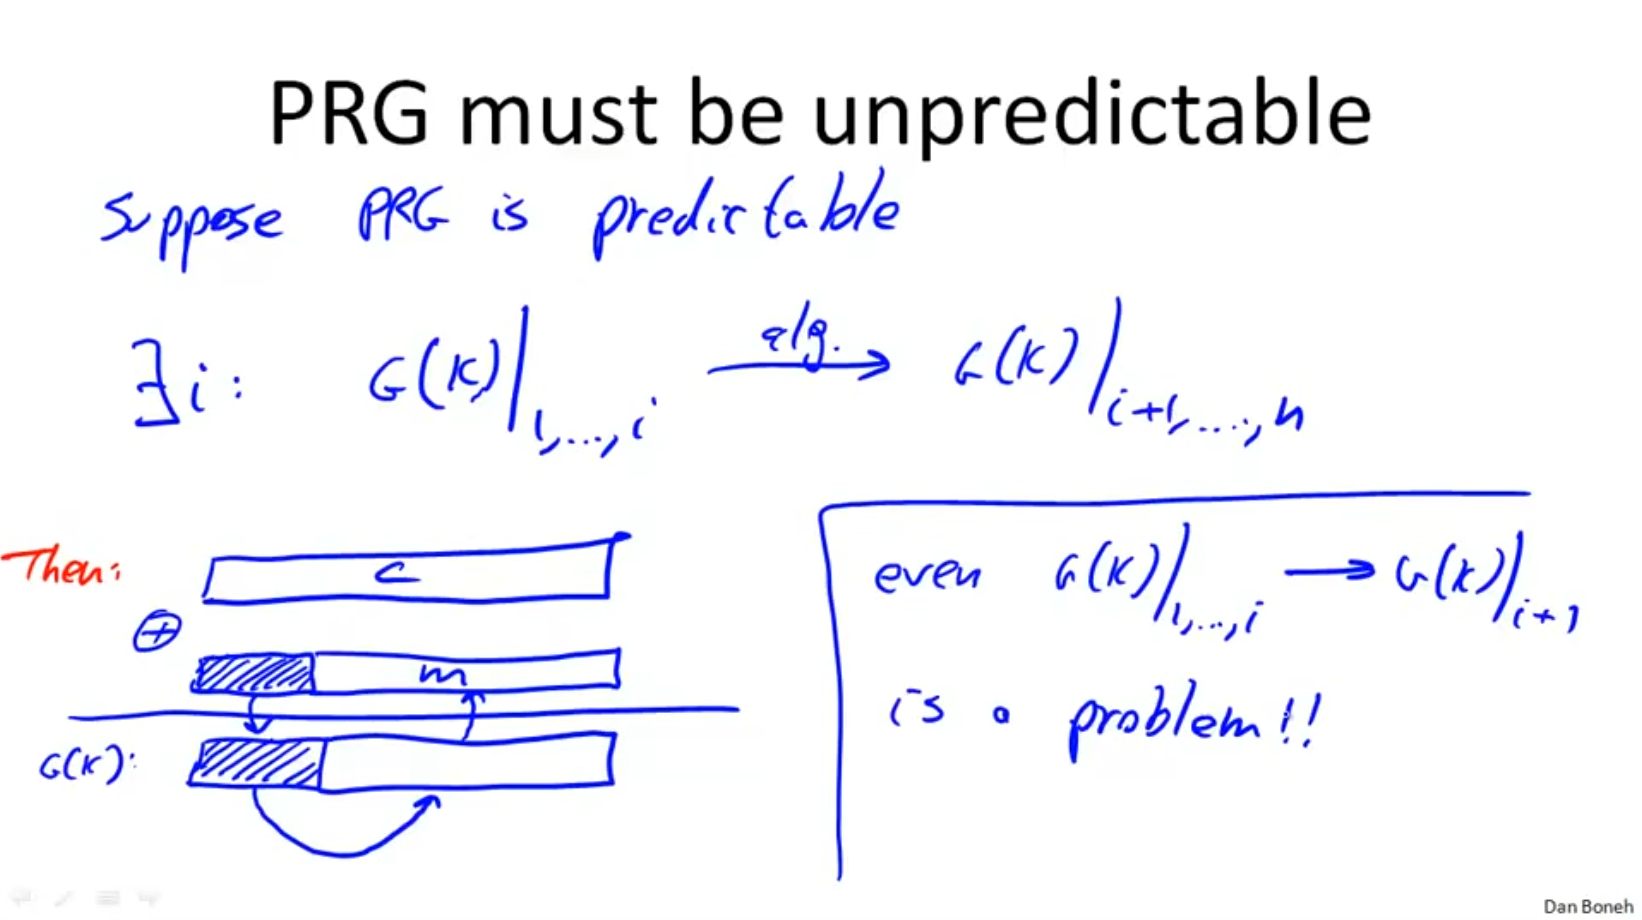 PRG must be unpredictable
Suppose PRG is predictable
∃i: G(K)|1,...,i alg. → G(K)|i+1,...,n
Then:
c
⊕
m
G(K):
even G(K)|1,...,i → G(K)|i+1
is a problem!!
Dan Boneh